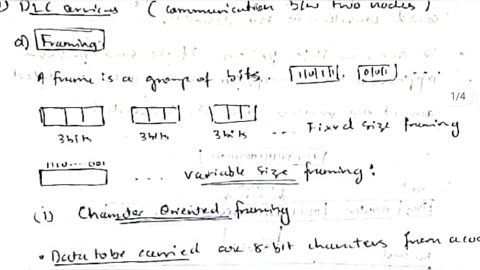 DLC services (communication b/w two nodes)
a) Framing
A frame is a group of bits. 110111, 01011 ....
1/4
3bits 3bits 3bits ... Fixed size framing
1110 ... 001
... Variable size framing:
(i) Character Oriented framing
• Data to be carried are 8-bit characters from a